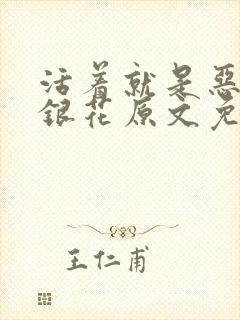 活着就是惡
銀花原文免
王仁甫